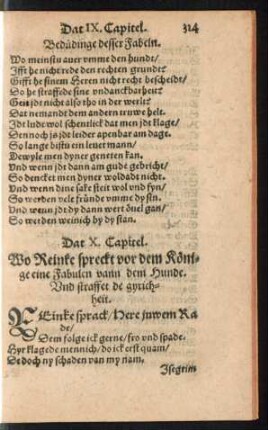 Dat IX. Capitel. 314
Bedüdinge desser Fabeln.
Wo meinstu auer vmme den hundt/
Isst he nicht rede den rechten grundt?
Gifft he sinem Heren nicht recht bescheidt/
Do he straffede sine vndanckbarheit?
Geit jdt nicht also tho in der werlt?
Dat nemandt dem andern truwe helt.
Jdt lude wol schentlick dat men jdt klage/
Dennoch is jdt leider apenbar am dage.
So lange bistu ein leuer mann/
Dewyle men dyner geneten kan.
Vnd wenn jdt dann am gude gebricht/
So dencket men dyner woldadt nicht.
Vnd wenn dine sake steit wol vnd fyn/
So werden vele fründe vmme dy syn.
Vnd wenn jdt dy dann wert öuel gan/
So werden weinich by dy stan.
Dat X. Capitel.
Wo Reinke spreckt vor dem Kön-
ge eine Fabulen vann dem Hunde.
Vnd straffet de gyrich-
heit.
REinke sprack/Here juwem Ra
de/
Dem folge ick gerne/fro vnd spade.
Hyr klagede mennich/do ick erst quam/
De doch ny schaden van my nam.
Isegrim